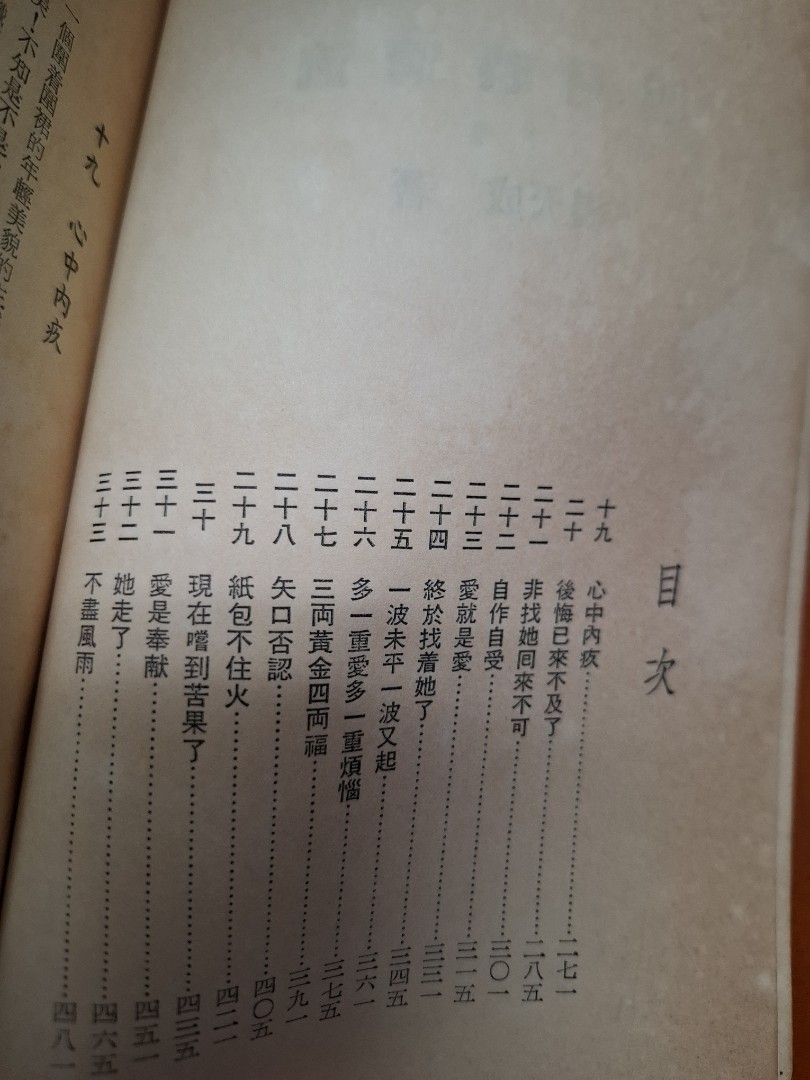 目次
十九 心中內疚……二七一
二十 後悔已來不及了……二八五
二十一 非找她囘來不可……三〇一
二十二 自作自受……三一五
二十三 愛就是愛……三三一
二十四 終於找着她了……三四五
二十五 一波未平一波又起……三六一
二十六 多一重愛多一重煩惱……三七五
二十七 三両黃金四両福……三九一
二十八 矢口否認……四〇五
二十九 紙包不住火……四二一
三十 現在嚐到苦果了……四三五
三十一 愛是奉献……四五一
三十二 她走了……四六五
三十三 不盡風雨……四八一
十九 心中內疚
一個圍着圍裙的年輕美貌的
！不知是不是